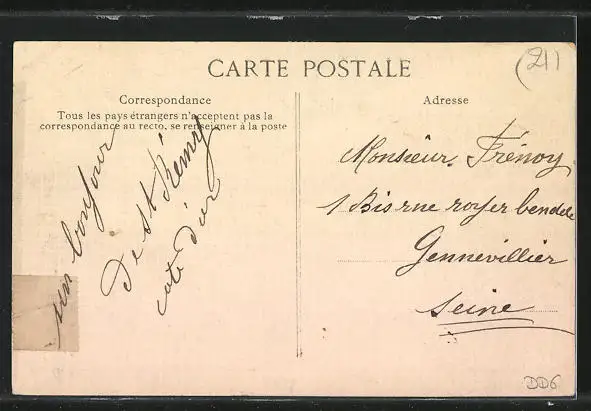 (21)
CARTE POSTALE
Correspondance
Tous les pays étrangers n'acceptent pas la
correspondance au recto, se renseigner à la poste
un bonjour
De St Rémy
cote d'or
Adresse
Monsieur Frénoy
1 Bis rue royer bendele
Gennevillier
Seine
DD6